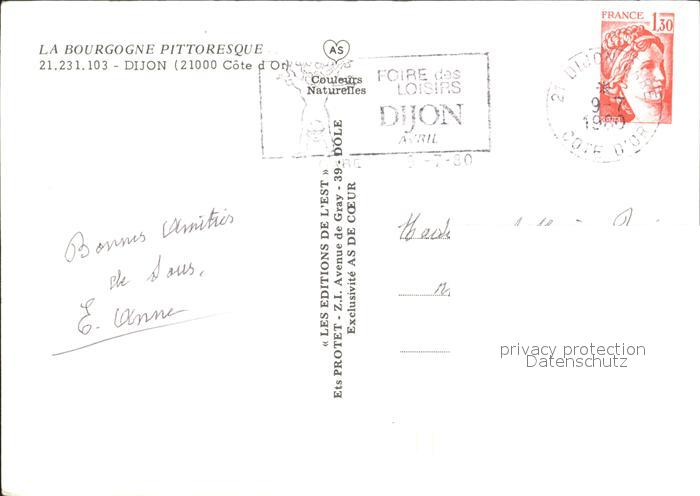 LA BOURGOGNE PITTORESQUE
21.231.103 - DIJON (21000 Côte d'Or)
AS
Couleurs
Naturelles
FOIRE des
LOISIRS
DIJON
AVRIL
GARE
9-7-80
21 DIJON GARE
9-7
1980
COTE D'OR
FRANCE
1,30
« LES EDITIONS DE L'EST »
Ets PROTET - Z.I. Avenue de Gray - 39 - DOLE
Exclusivité AS DE CŒUR
Bonnes Amitiés
de Tous.
E. Anne
privacy protection
Datenschutz